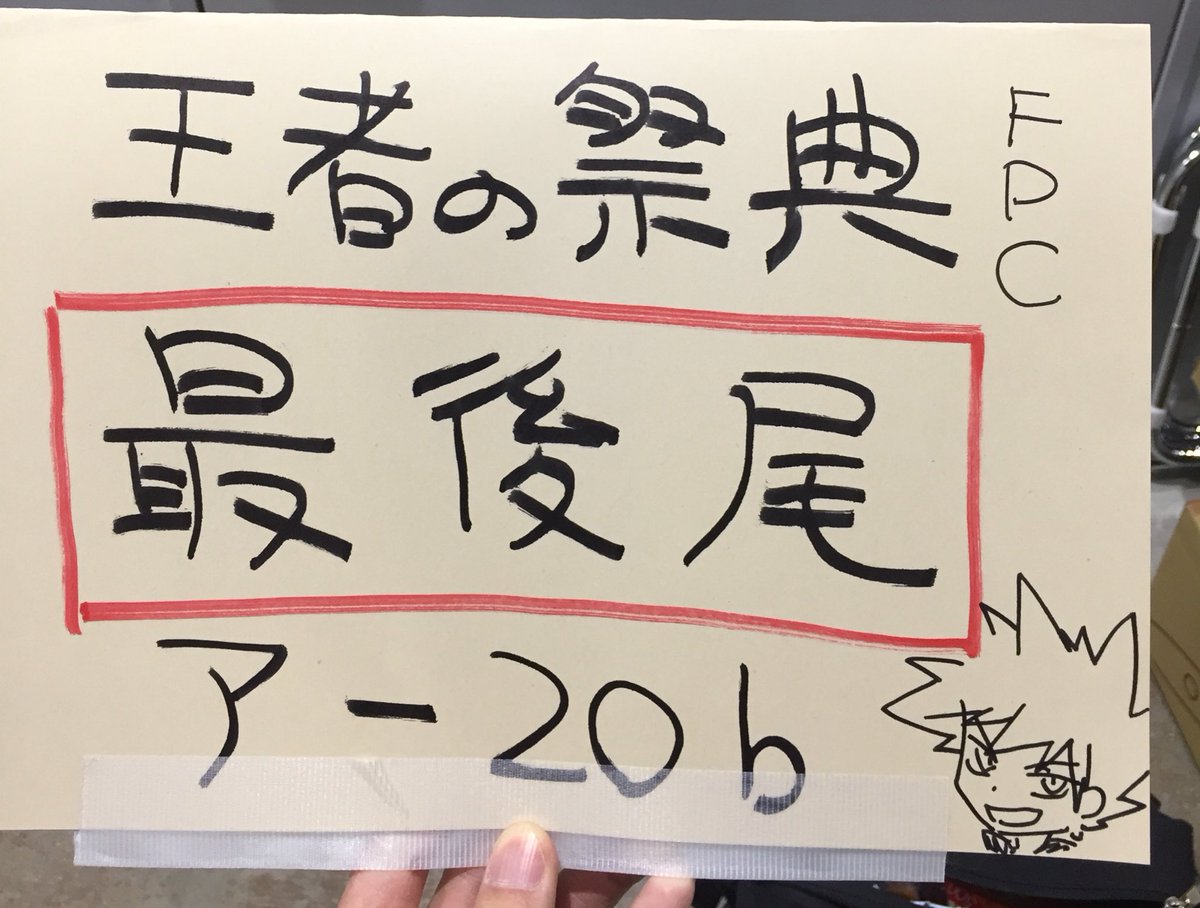 王者の祭典
FDC
最後尾
ア-20b